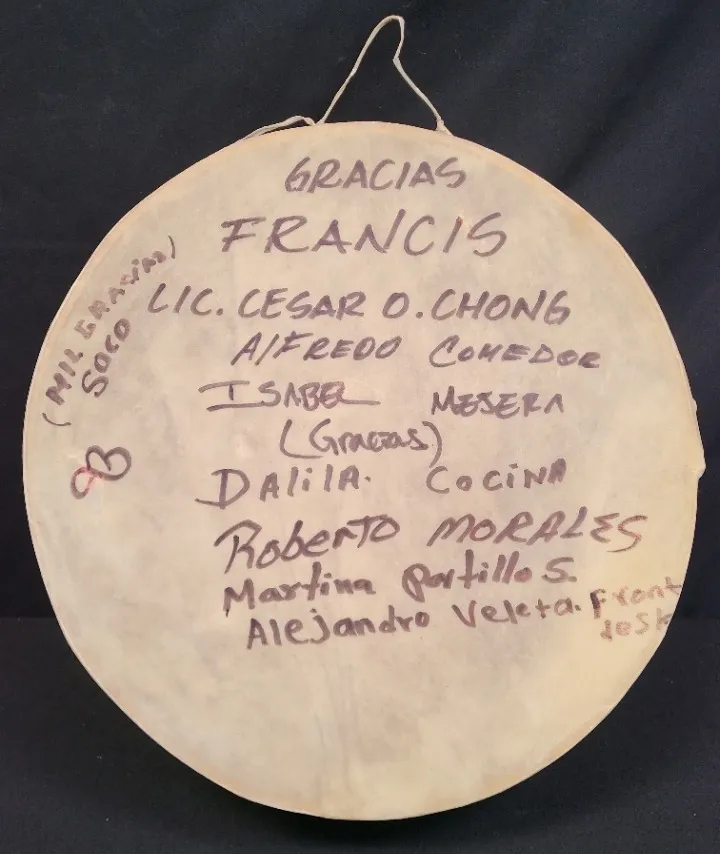 GRACIAS
FRANCIS
LIC. CESAR O. CHONG
AlFREDO COMEDOR
ISABEL MESERA
(Gracias)
DAlilA. COCiNA
RobeRTO MORALES
Martina Portillo S.
Alejandro Veleta. Front
desk
(MIL GRACIAS)
SOCO